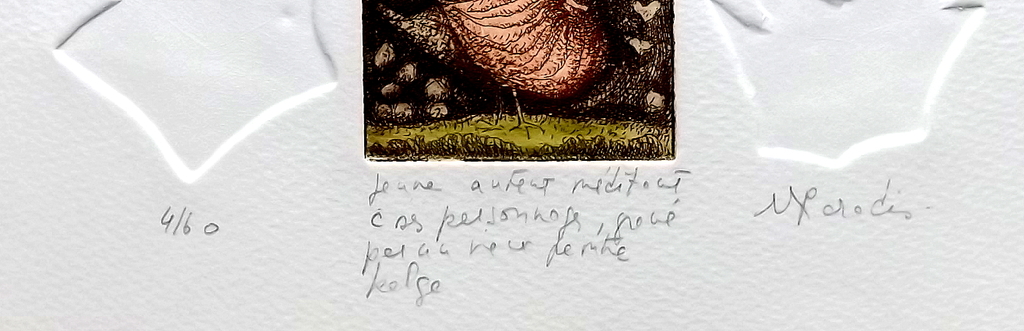 4/60
Jeune auteur méditant
à ses personnages, gravé
par un vieux peintre
belge